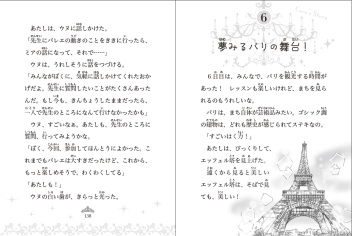 6
夢みるパリの舞台！
6日目は、みんなで、パリを観光する時間が
あった！ レッスンも楽しいけれど、まちを見ら
れるのもうれしいな。
パリは、まち自体が芸術品みたい。ゴシック調
の建物は、どれも歴史が感じられてステキなの。
「すごいはく力！」
あたしは、びっくりして、
エッフェル塔を見上げた。
遠くから見ると美しい
エッフェル塔は、そばで見
ても、美しい！
あたしは、ウヌに話しかけた。
「先生にバレエの動きのことをききに行ったら、
ミアの話になって、それで……」
ウヌは、うれしそうに話をつづける。
「みんながぼくに、気軽に話しかけてくれたおか
げだよ。先生に質問したいことがたくさんあった
んだ。もし今も、きんちょうしたままだったら、
一人で先生のところになんて行けなかったかも」
ウヌ、すごいなぁ。あたしも、先生のところに
質問、行ってみようかな。
「ぼく、今回、参加してほんとうによかった。こ
れまでもバレエは大すきだったけど、これから、
もっと楽しめそうで、わくわくしてる」
「あたしも！」
ウヌの白い歯が、きらっと光った。
138